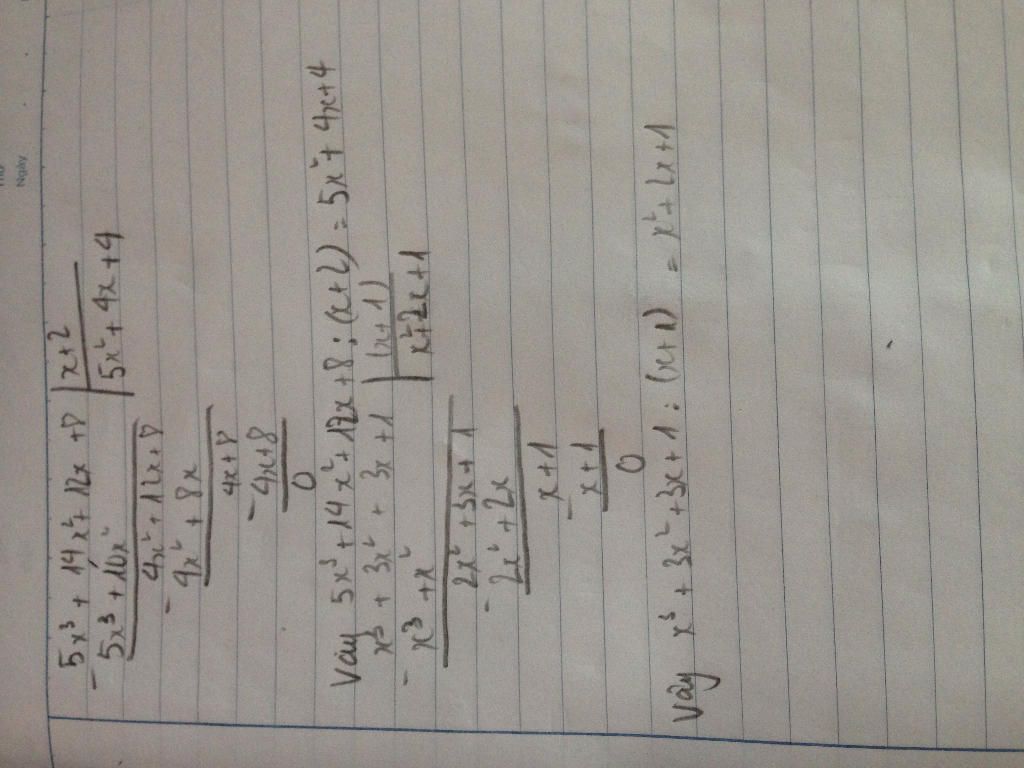 Thứ
Ngày
5x³ + 14x² + 12x + 8 | x+2
- 5x³ + 10x² | 5x² + 4x + 4
4x² + 12x + 8
- 4x² + 8x
4x + 8
- 4x + 8
0
Vậy 5x³ + 14x² + 12x + 8 : (x+2) = 5x² + 4x + 4
x³ + 3x² + 3x + 1 | (x+1)
- x³ + x² | x² + 2x + 1
2x² + 3x + 1
- 2x² + 2x
x + 1
- x + 1
0
Vậy x³ + 3x² + 3x + 1 : (x+1) = x² + 2x + 1